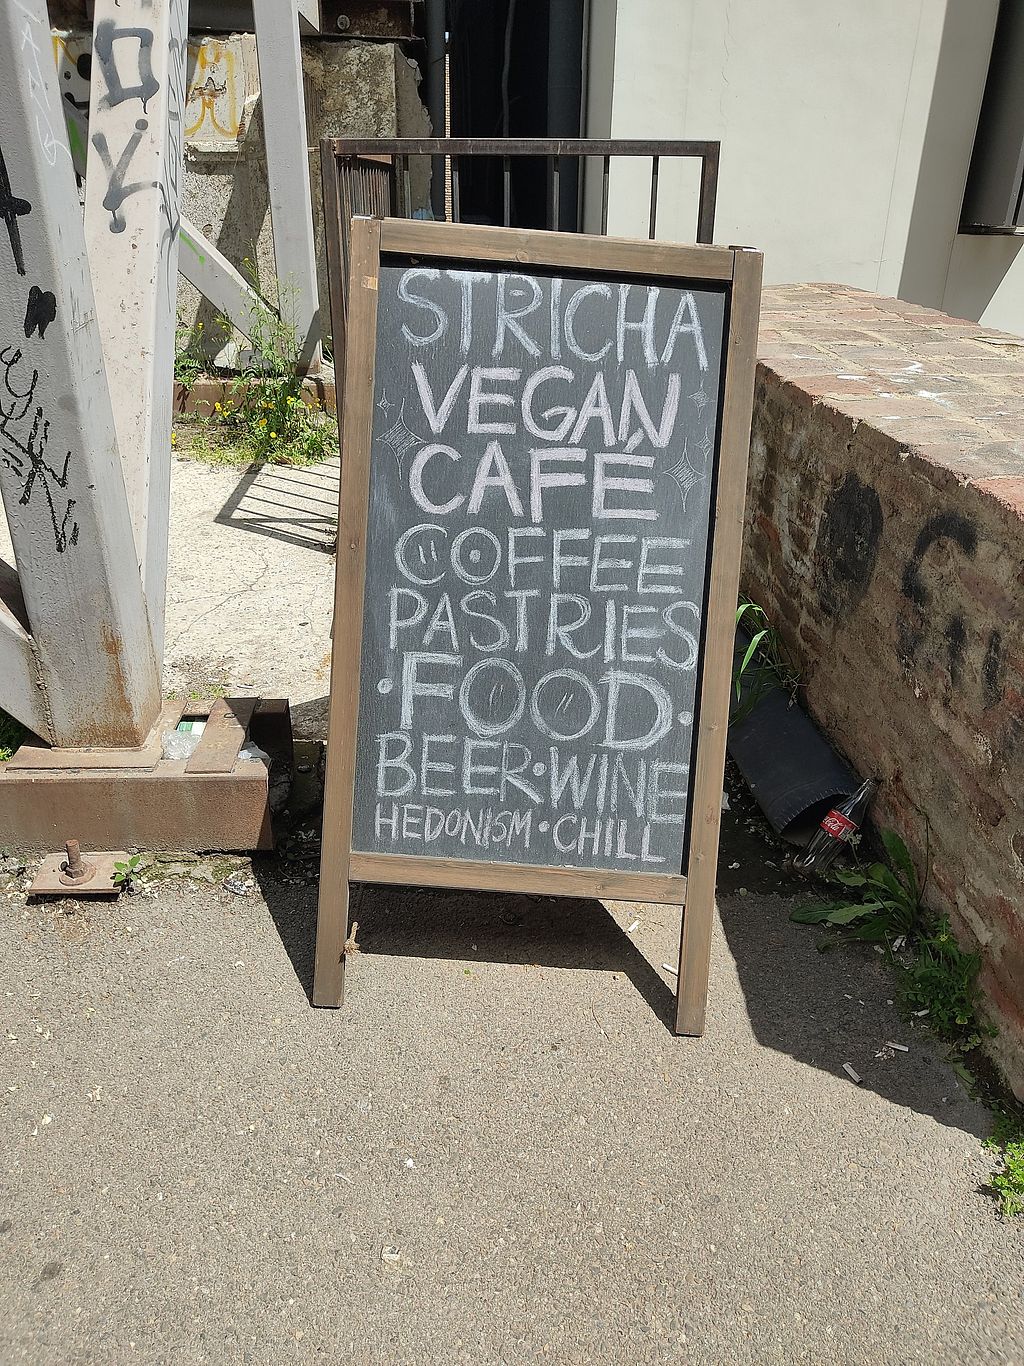 STRICHA
VEGAN
CAFÉ
COFFEE
PASTRIES
·FOOD·
BEER·WINE
HEDONISM·CHILL